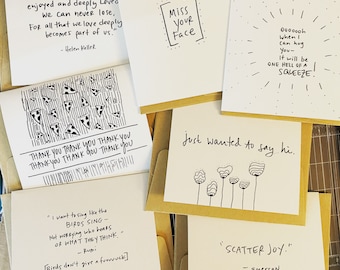 enjoyed and deeply Loved
we can never lose.
For all that we love deeply
becomes part of us."
- Helen Keller
MISS
YOUR
FACE
OOOOOOH
when I
can hug
you-
it will be
ONE HELL OF A
SQUEEZE!
THANK YOU THANK YOU THANK YOU
THANK YOU THANK YOU THANK YOU
just wanted to say hi.
"I want to sing like the
BIRDS SING -
Not worrying who hears
OR WHAT THEY THINK."
- Rumi
[Birds don't give a
"SCATTER JOY."
- EMERSON